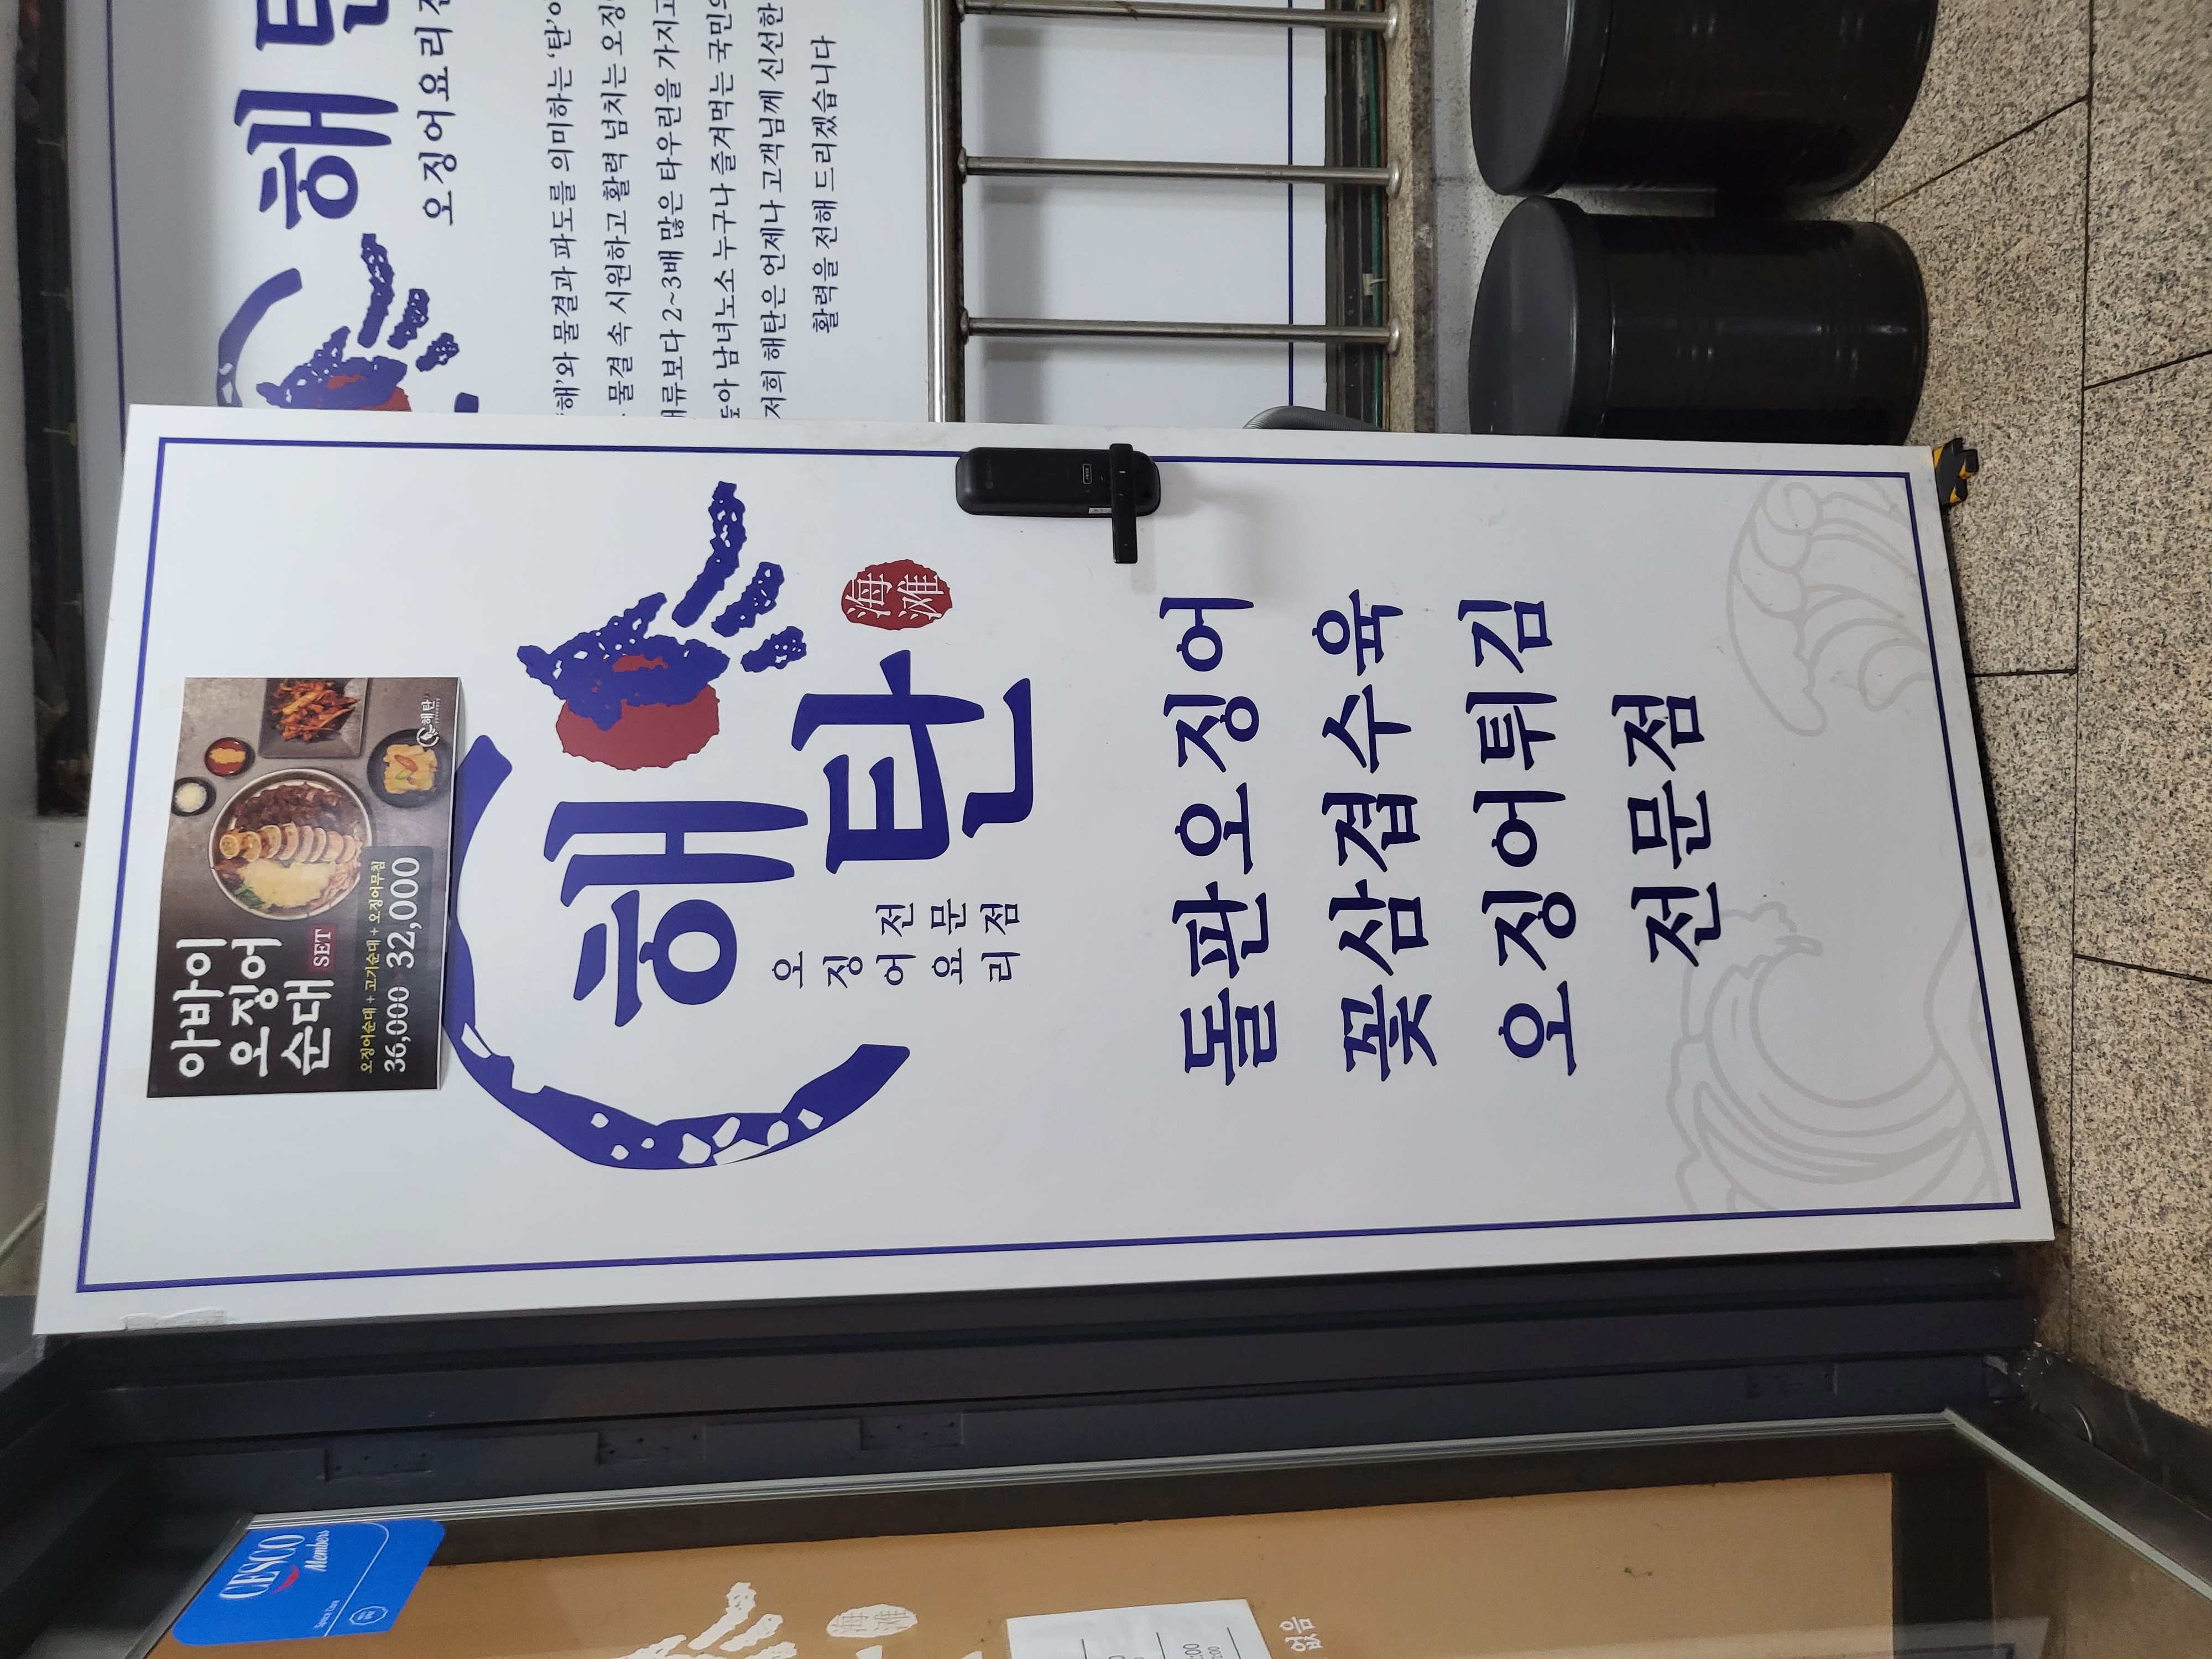 해탄
오징어요리
'해'와 물결과 파도를 의미하는 '탄'
물결 속 시원하고 활력 넘치는
2~3배 많은 타우린을 가지고
남녀노소 누구나 즐겨먹는
저희 해탄은 언제나 고객님께 신선한
활력을 전해 드리겠습니다
아바이
오징어
순대 SET
오징어순대 + 고기순대 + 오징어무침
36,000 32,000
해탄
해탄
海滩
오징어요리
전문점
돌판오징어
꽃삼겹수육
오징어튀김
전문점
CESCO
Members
海滩
없음